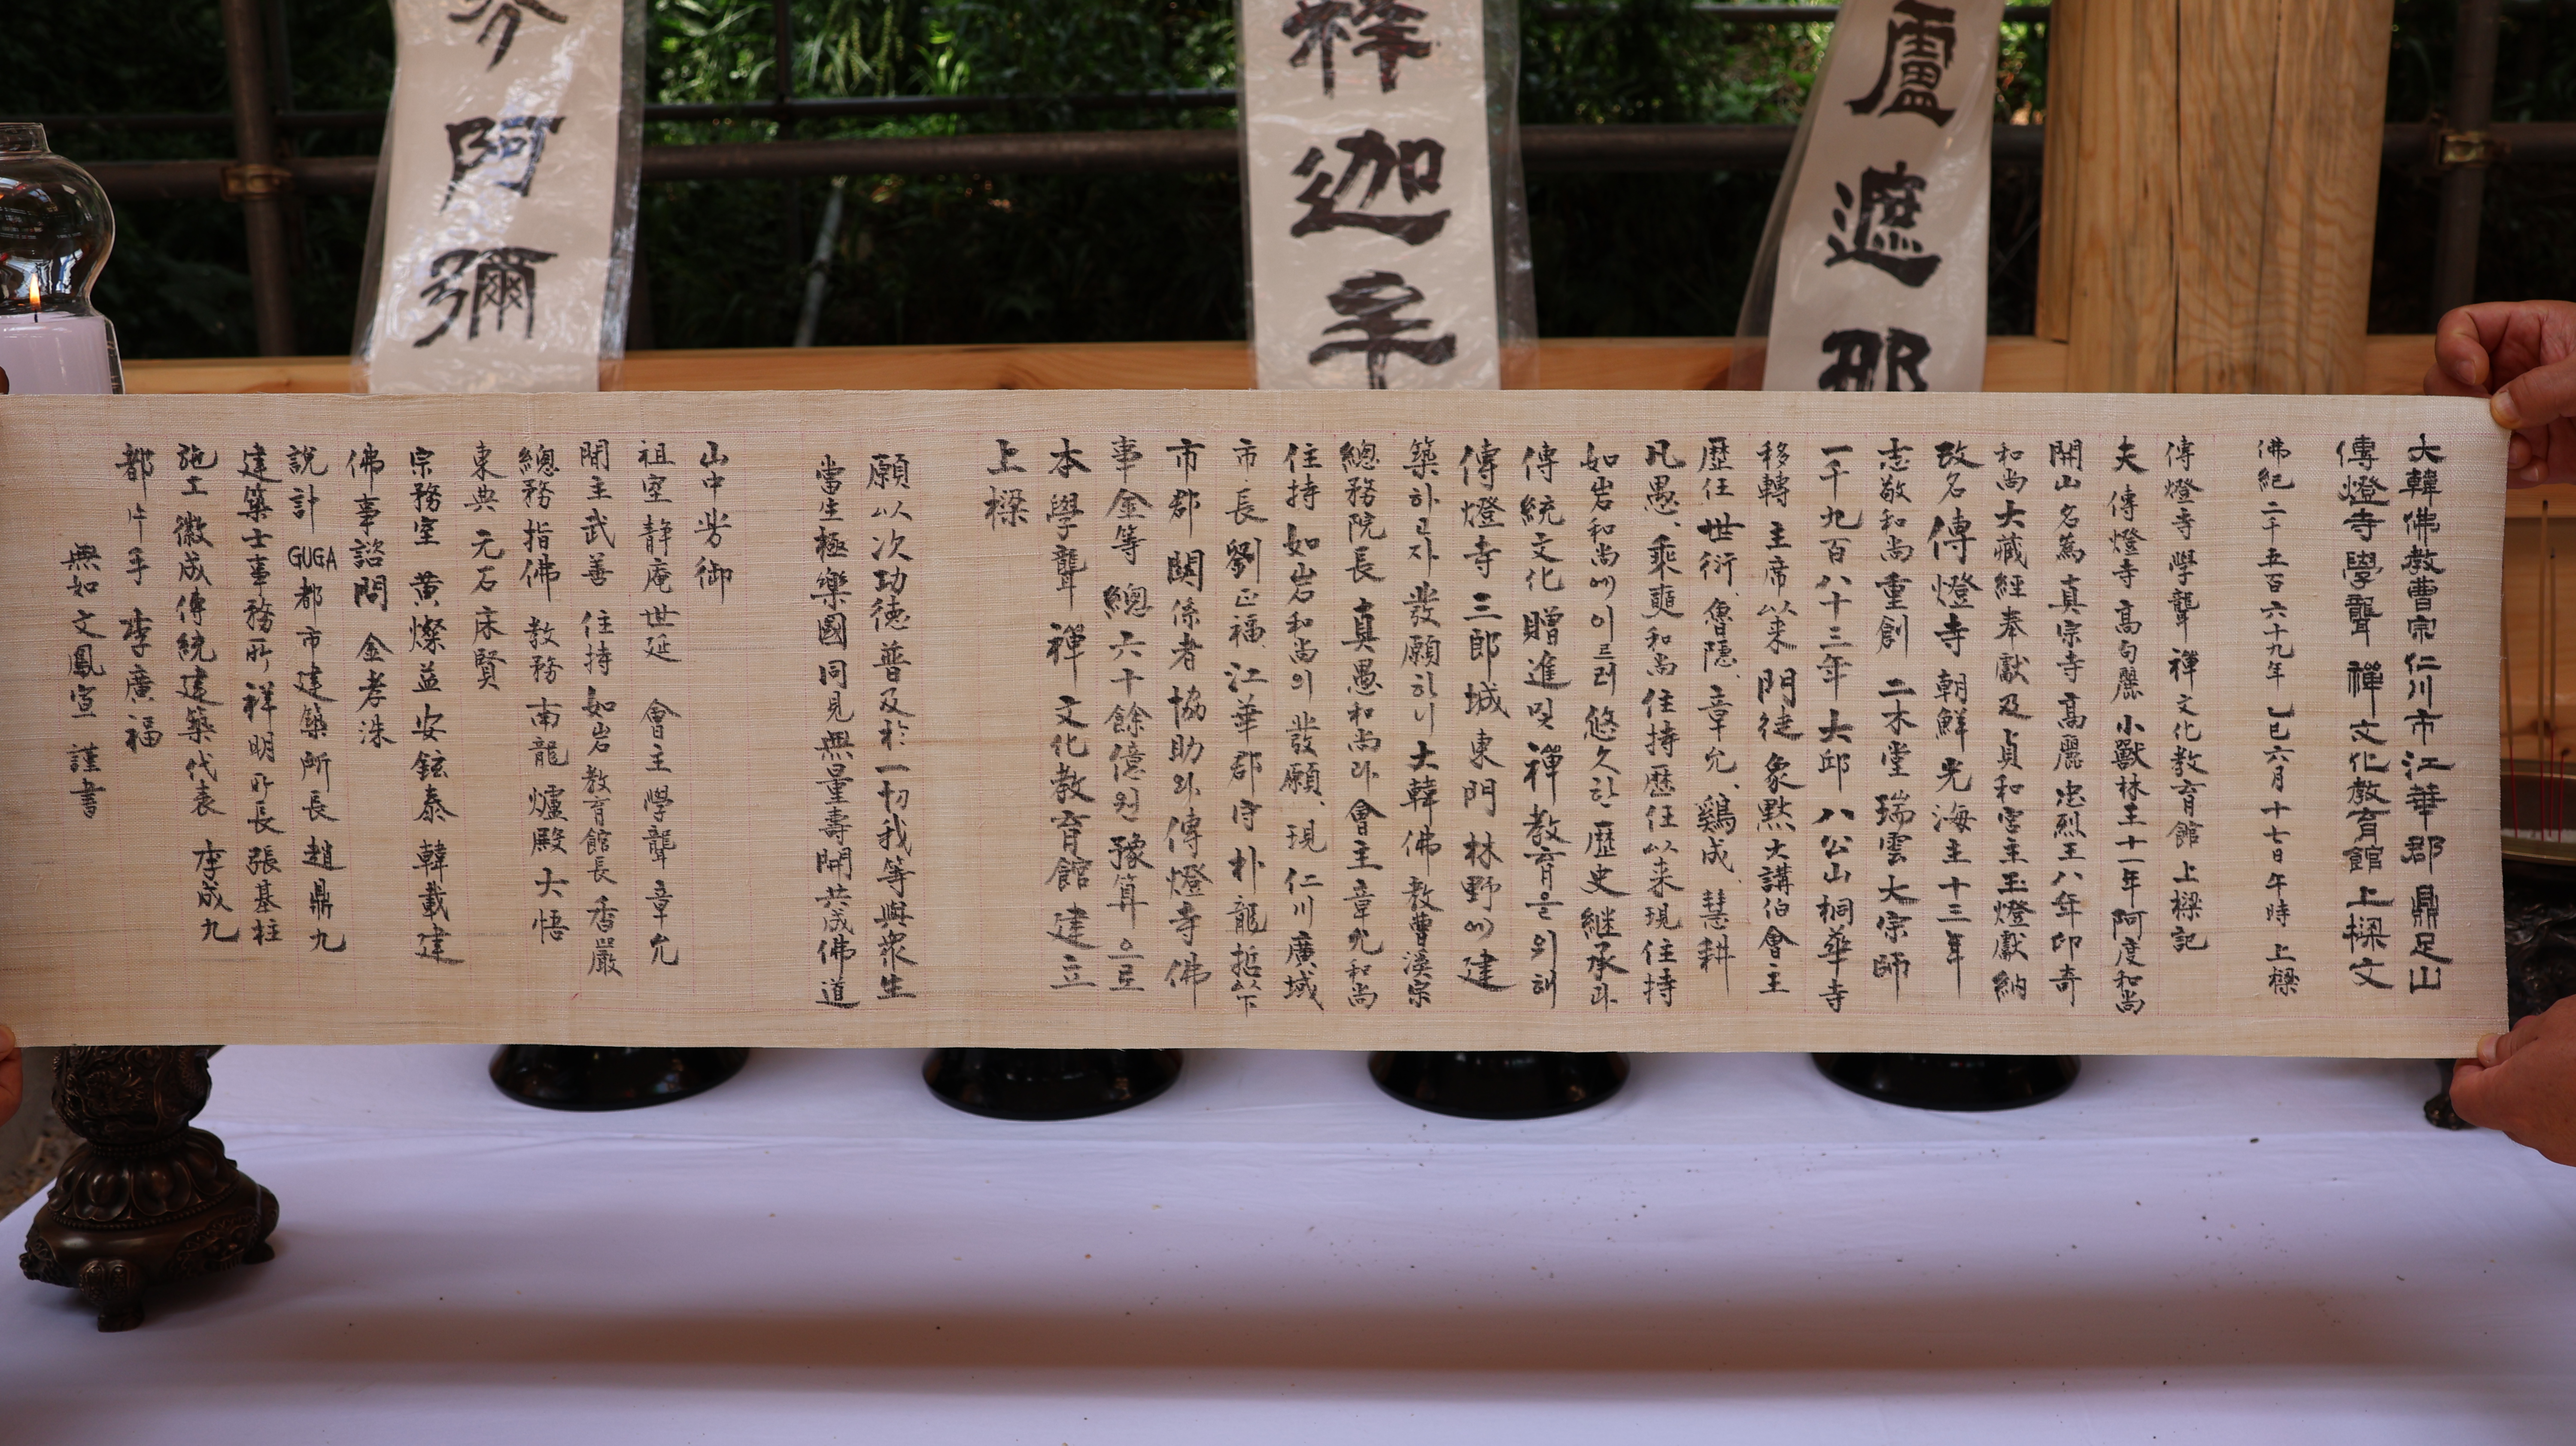 大韓佛教曹宗仁川市江華郡 鼎足山
傳燈寺學聾 禪 文化教育館 上樑文
佛紀 二千五百六十九年 乙巳六月十七日午時 上樑
傳燈寺 學聾 禪文化教育館 上樑記
夫 傳燈寺 高句麗 小獸林王十一年 阿度和尚
開山 名為 真宗寺 高麗 忠烈王八年 印奇
和尚 大藏經奉獻 及 貞和宮主 玉燈獻納
改名 傳燈寺 朝鮮 光海主十三年
志敬和尚 重創 二木堂 瑞雲大宗師
一千九百八十三年 大邱 八公山 桐華寺
移轉 主席以来 門徒 象默大講伯 會主
歷任 世衍、魯隱、章允、鷄成、慧耕
凡愚、乘奭和尚 住持歷任以来 現住持
如岩和尚에 이르러 悠久한 歷史継承과
傳統文化 贈進 및 禪教育을 위해
傳燈寺 三郎城 東門 林野에 建
築하고자 發願하니 大韓佛教曹溪宗
總務院長 真愚和尚과 會主章允和尚
住持 如岩和尚의 發願、現 仁川廣域
市長 劉正福、江華郡守 朴龍哲以下
市郡 関係者 協助와 傳燈寺 佛
事金等 總六十餘億원 豫算으로
本 學聾 禪 文化教育館 建立
上樑
願以次功德 普及於一切 我等與衆生
當生極樂國 同見無量壽 開共成佛道
山中芳御
祖室 静庵世延 會主 學聾章允
開主 武善 住持 如岩 教育館長 香嚴
總務 指佛 教務 南龍 爐殿 大悟
東典 元石 床賢
宗務室 黄燦益 安鉉泰 韓載建
佛事諮問 金孝洙
說計 GUGA都市建築所長 趙鼎九
建築士事務所 祥明 所長 張基柱
施工 徽成傳統建築代表 李成九
都片手 李廣福
無如 文鳳宣 謹書
盧遮那
釋迦牟
阿彌